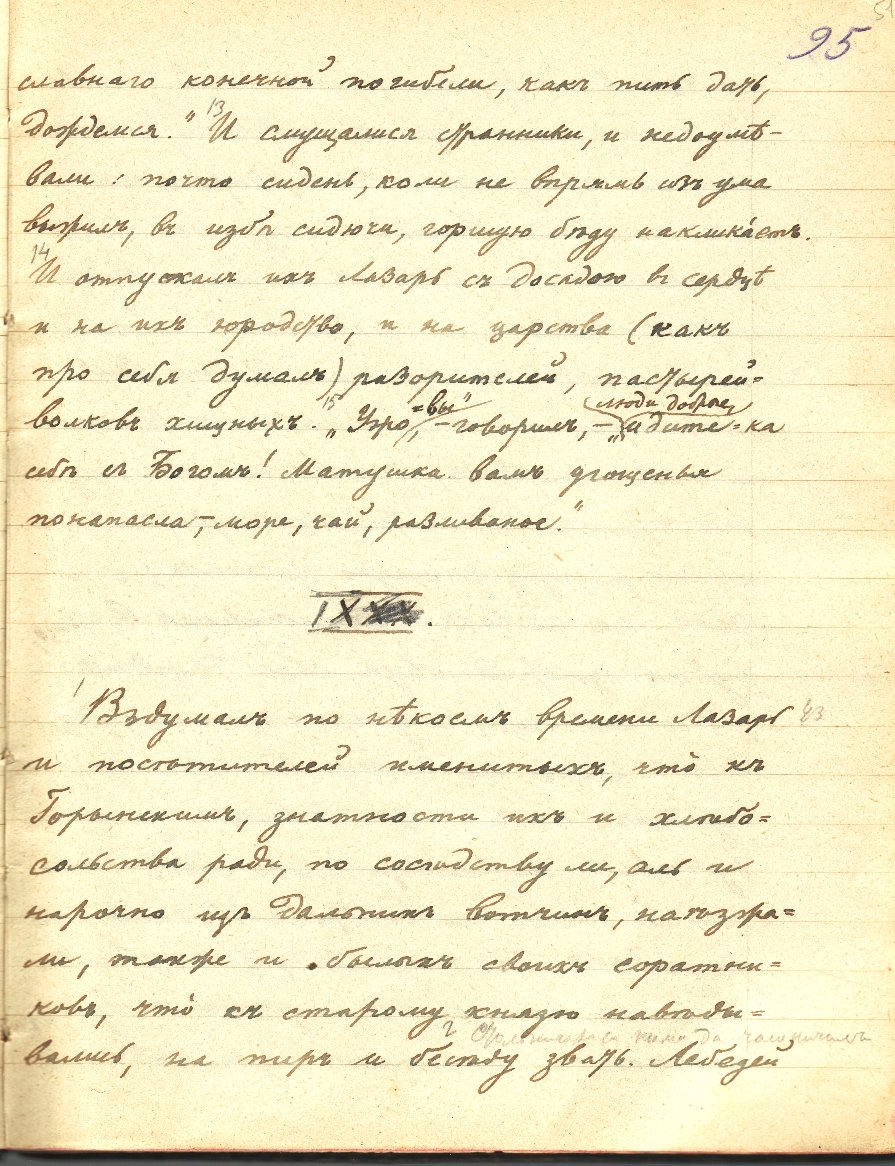 95
51
славнаго конечной погибели, какъ пить дать,
дождемся." 13 И смущалися странники, и недоумѣ-
вали: почто сидень, коли не впрямь изъ ума
выжилъ, въ избѣ сидючи, горшую бѣду накликáетъ.
14 И отпускалъ ихъ Лазарь съ досадою въ сердцѣ
и на ихъ юродство, и на царства (какъ
про себя думалъ) разорителей, пастырей-
=вы" люди добрые,
волковъ хищныхъ. 15 „Ужо, – говорилъ, – „идите-ка
себѣ съ Богомъ! Матушка вамъ угощенья
понапасла, – море, чай, разливаное."
IX.
1 Вздумалъ по нѣкоемъ времени Лазарь
и посѣтителей именитыхъ, чтó къ
Горынскимъ, знатности ихъ и хлѣбо=
сольства ради, по сосѣдству ли, аль и
нарочно изъ дальнихъ вотчинъ, наѣзжа=
ли, также и былыхъ своихъ соратни=
ковъ, чтó къ старому князю навѣды=
вались, на пиръ и бесѣду звать. 2 Лебедей